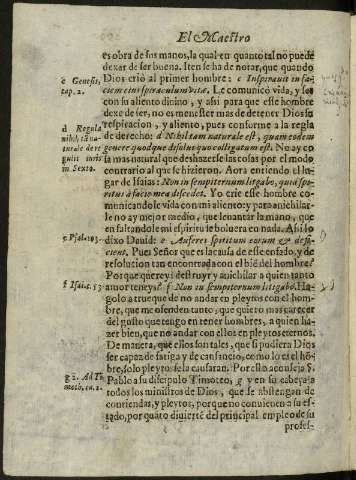 El Maestro
es obra de sus manos, la qual en quanto tal no puede
dexar de ser buena. Iten se ha de notar, que quando
Dios criò al primer hombre: c Inspirauit in fa-
ciem eius spiraculum vitæ. Le comunicó vida, y ser
con su aliento diuino, y assi para que este hombre
dexe de ser, no es menester mas de detener Dios su
respiracion, y aliento, pues conforme a la regla
de derecho: d Nihil tam naturale est, quam eodem
genere quodque dissolui quo colligatum est. No ay co
sa mas natural que deshazerse las cosas por el modo
contrario al que se hizieron. Aora entiendo el lu-
gar de Isaias: Non in sempiternum litigabo, quia spi-
ritus à facie mea
Yo crie esse hombre co-
municandole vida con mi aliento: y para anichilar-
le no ay mejor medio, que leuantar la mano, que
en faltandole mi espiritu se boluera en nada. Assi lo
dixo Dauid: e Auferes spiritum eorum & defi-
cient. Pues Señor que es la causa de esse enfado, y de
resolucion tan encontrada con el bié del hombre?
Porque quereys destruyr y anichilar a quien tanto
amor teneys? f Non in sempiternum litigabo. Ha-
golo a trueque de no andar en pleytos con el hom-
bre, que me ofenden tanto, que quiero mas carecer
del gusto que tengo en tener hombres, a quien ha-
zer bien, que no andar con ellos en pleytos eternos.
De manera, que ellos son tales, que si pudiera Dios
ser capaz de fatiga y de cansancio, como lo es el hó-
bre, solo pleytos se la causaran. Por esto aconseja S.
Pablo a su discipulo Timoteo, g y en su cabeça a
todos los ministros de Dios, que se abstengan de
contiendas, y pleytos, porque no conuienen a su es-
tado, por quãto diuierté del principal empleo de su
profes-
c Genesis,
cap. 2.
d Regula
nihil, tã na-
turale de re
gulis iuris
in Sexto.
e Psal. 103.
f Isai. c. 57
g 2. Ad Ti
mot. ca. 2.